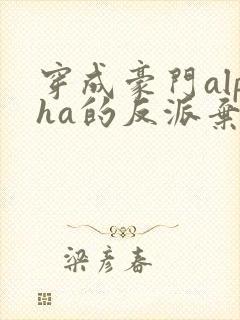 穿成豪門alp
ha的反派棄
梁彦春